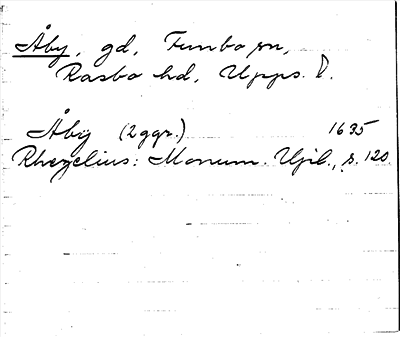 Åby, gd, Funbo sn,
Rasbo hd, Upps. l.
Åby (2ggr.) 1635
Rhezelius: Monum. Upl., s. 120.